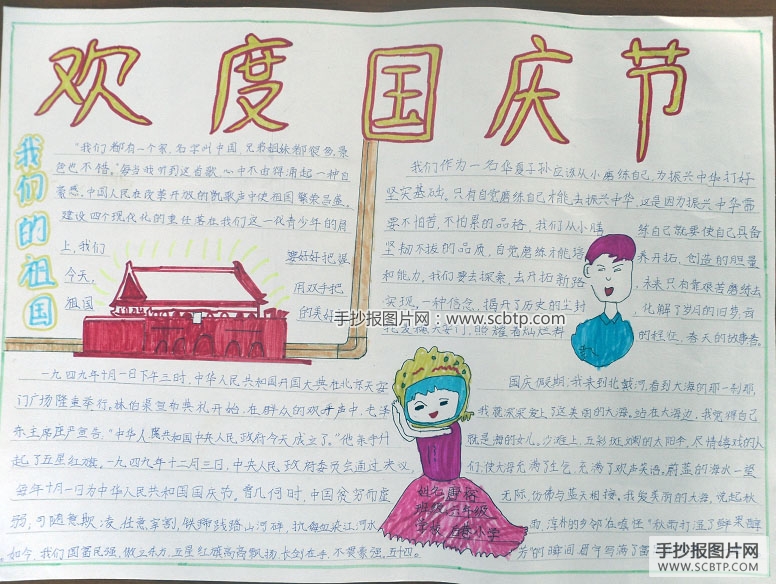 欢度国庆节
我们的祖国
"我们都有一个家,名字叫中国,兄弟姐妹都很多,景
色也不错,"每当我听到这首歌,心中不由得涌起一种自
豪感,中国人民在改革开放的凯歌声中使祖国繁荣昌盛、
建设四个现代化的重任落在我们这一代青少年的肩
上,我们 要好好把握
今天, 用双手把
祖国 的美好
我们作为一名华夏子孙应该从小磨练自己,为振兴中华打好
坚实基础。只有自觉磨练自己才能去振兴中华,这是因为振兴中华需
要不怕苦,不怕累的品格,我们从小 练自己就要使自己具备
坚韧不拔的品质,自觉磨练才能培 养开拓、创造的胆量
和能力,我们要去探索,去开拓新路 ,未来只有靠艰苦磨练去
实现,一种信念,揭开了历史的尘封 ,化解了岁月的旧梦
安门,照耀着灿烂 的程位,春天的故事
手抄报图片网:www.scbtp.com
一九四九年十月一日下午三时,中华人民共和国开国大典在北京天安
门广场隆重举行。林伯渠宣布典礼开始,在群众的欢声中,毛泽
东主席庄严宣告:"中华人民共和国中央人民政府今天成立了。"他亲手升
起了五星红旗。一九四九年十二月三日,中央人民政府委员会通过决议,
每年十月一日为中华人民共和国国庆节。曾几何时,中国贫穷而虚
弱,可随意欺凌,任意宰割,铁蹄践踏山河碎,抗 血染江河水,
如今,我们国富民强,傲立东方,五星红旗高高飘扬,长剑在手,不畏豪强。五十四。
国庆假期,我来到北戴河,看到大海的那一刹那,
我深深爱上了这美丽的大海。站在大海边,我觉得自己
就是海的女儿。沙滩上,五彩斑斓的太阳伞,尽情嬉戏的人
们,使大海充满了生气,充满了欢声笑语。蔚蓝的海水一望
无际,仿佛与蓝天相接。我爱美丽的大海,
雨,淳朴的乡邻在 "秋雨打湿了鲜果醉
芳的瞬间
姓名
班级 年级
学校 小学
手抄报图片网
WWW.SCBTP.COM